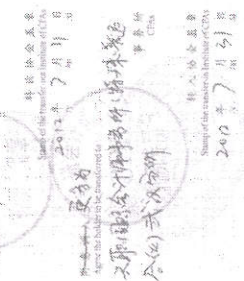 转出协会盖章
Stamp of the transfer-out Institute of CPAs
2012年7月31日
Agree the holder to be transferred to
天职国际会计师事务所(特殊普通
事务所
CPAs
合伙)武汉分所
转入协会盖章
Stamp of the transfer-in Institute of CPAs
2012年7月31日